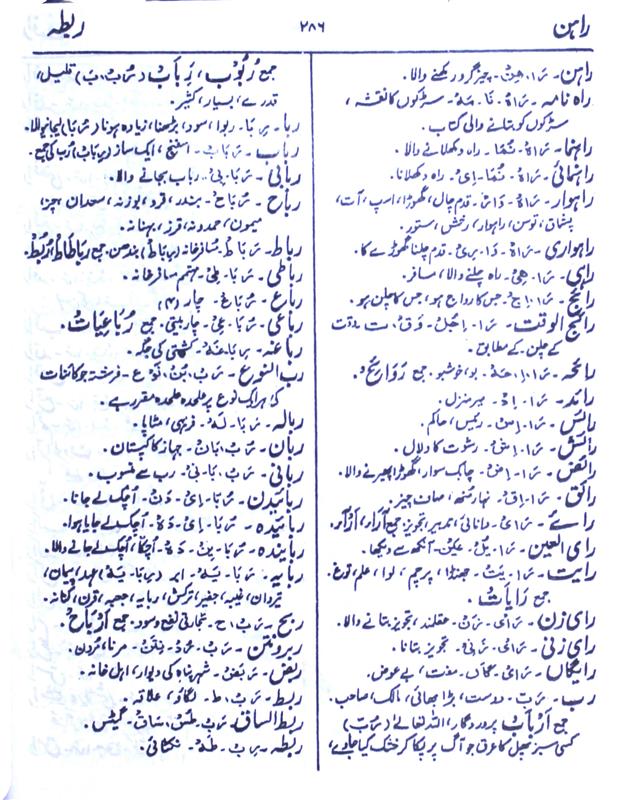 راہن
۲۸۶
ربطہ
راہن - رَ ا. ہِن - چیز گرو رکھنے والا.
راہ نامہ - رَ اہ - نَا - مَہ - سڑکوں کا نقشہ،
سڑکوں کو بتانے والی کتاب.
راہنما - رَ اہ - نُمَا - راہ دکھلانے والا.
راہنمائی - رَ اہ - نُمَا - ئِی - راہ دکھلانا.
راہوار - رَ اہ - وَار - قدم چال، گھوڑا، اسپ، آت،
توسن، راہوار، رخش، ستور.
راہواری - رَ اہ - وَا - رِی - قدم چلنا گھوڑے کا.
راہی - رَ ا - ہِی - راہ چلنے والا، مسافر.
رائج - رَ ا. اِج - جس کا رواج ہو، جس کا چلن ہو.
رائج الوقت - رَ ا - اِجُل - وَق - ت - وقت
کے چلن کے مطابق.
رائحہ - رَ ا. اِ. حَہ - بو، خوشبو. جمع رَوَائِح.
رائد - رَ ا - اِد - میر منزل.
رائس - رَ ا. اِس - رئیس، حاکم.
رائش - رَ ا - اِش - رشوت کا دلال.
رائض - رَ ا - اِض - چابک سوار، گھوڑا پھیرنے والا.
رائق - رَ ا. اِق - نہار منھ، صاف چیز.
رائے - رَ ا - ئ - دانائی، تدبیر، تجویز جمع آراء، اَرْآء.
رای العین - رَ ا - یُل - عَین - آنکھ سے دیکھا.
رایت - رَ ا - یَت - جھنڈا، پرچم، لوا، علم،
جمع رَایَات.
رای زن - رَ ا ی - زَن - عقلمند، تجویز بتانے والا.
رای زنی - رَ ا ی - زَنِی - تجویز بتانا.
رایگاں - رَ ا ی - گَاں - مفت، بے عوض.
رب - رَ ب - دوست، بڑا بھائی، مالک، صاحب.
جمع اَرْبَاب پروردگار، اللہ تعالےٰ (رُب)
کسی سبز پھل کا عرق جو آگ پر پکا کر خشک کیا جاوے،
جمع رُبُوب، رِبَاب، (رُبَ، بَ) قلیل،
قدرے، بسیار، کثیر.
ربا - رِ بَا - ربوا، سود، بڑھنا، زیادہ ہونا (رُبَا) لیجانیوالا.
رباب - رَ بَاب - اسفنج، ایک ساز (رِبَاب) رُب کی جمع.
ربابی - رَ بَا - بِی - رباب بجانے والا.
رباح - رَ بَاح - بندر، قرد، بوزنہ، سعدان،
میمون، حمدونہ،
رباط - رِ بَاط - مسافرخانہ (رِبَاط) بندھن. جمع رِبَاطَات، رُبُط.
رباطی - رِ بَا - طِی - مہتمم مسافرخانہ.
رباع - رُ بَاع - چار (۴)
رباعی - رُ بَا - عِی - چار بیتی. جمع رُبَاعِیَات.
رباعنہ - رِ بَا. عَنہ - کشتی کی جگہ.
رب النوع - رَ ب. بُن - نَو - ع - فرشتہ جو کائنات
کی ہر ایک نوع پر علحدہ علحدہ مقرر ہے.
ربالہ - رَ بَا - لَہ - فربہی، مٹاپا.
ربان - رُ ب. بَان - جہاز کا کپتان.
ربانی - رَ ب. بَا - نِی - رب سے منسوب.
ربایدن - رُ بَا - ئِ - دَن - اُچک لے جانا.
ربایدہ - رُ بَا - ئِ - دَہ - اُچک لے جایا ہوا.
ربایندہ - رُ بَا - یِن - دَہ - اُچکّا، اُچک لے جانے والا.
ربایہ - رَ بَا - یَہ - ابر (رِبَا - یَہ) عہد، پیمان،
تیردان، غیبہ، جفیر، ترکش، ربایہ، جعبہ، قرن، کنانہ.
ربح - رِ ب. ح - تجارتی نفع و سود. جمع اَرْبَاح.
ربودتن - رَ ب - - تَن - مرنا، مردن.
ربض - رَ بَض - شہر پناہ کی دیوار، اہل خانہ.
ربط - رَ ب. ط - لگاؤ، علاقہ.
ربط الساق - رَ ب. طَس، سَاق - گیٹس.
ربطہ - رَ ب - طَہ - نکٹائی.